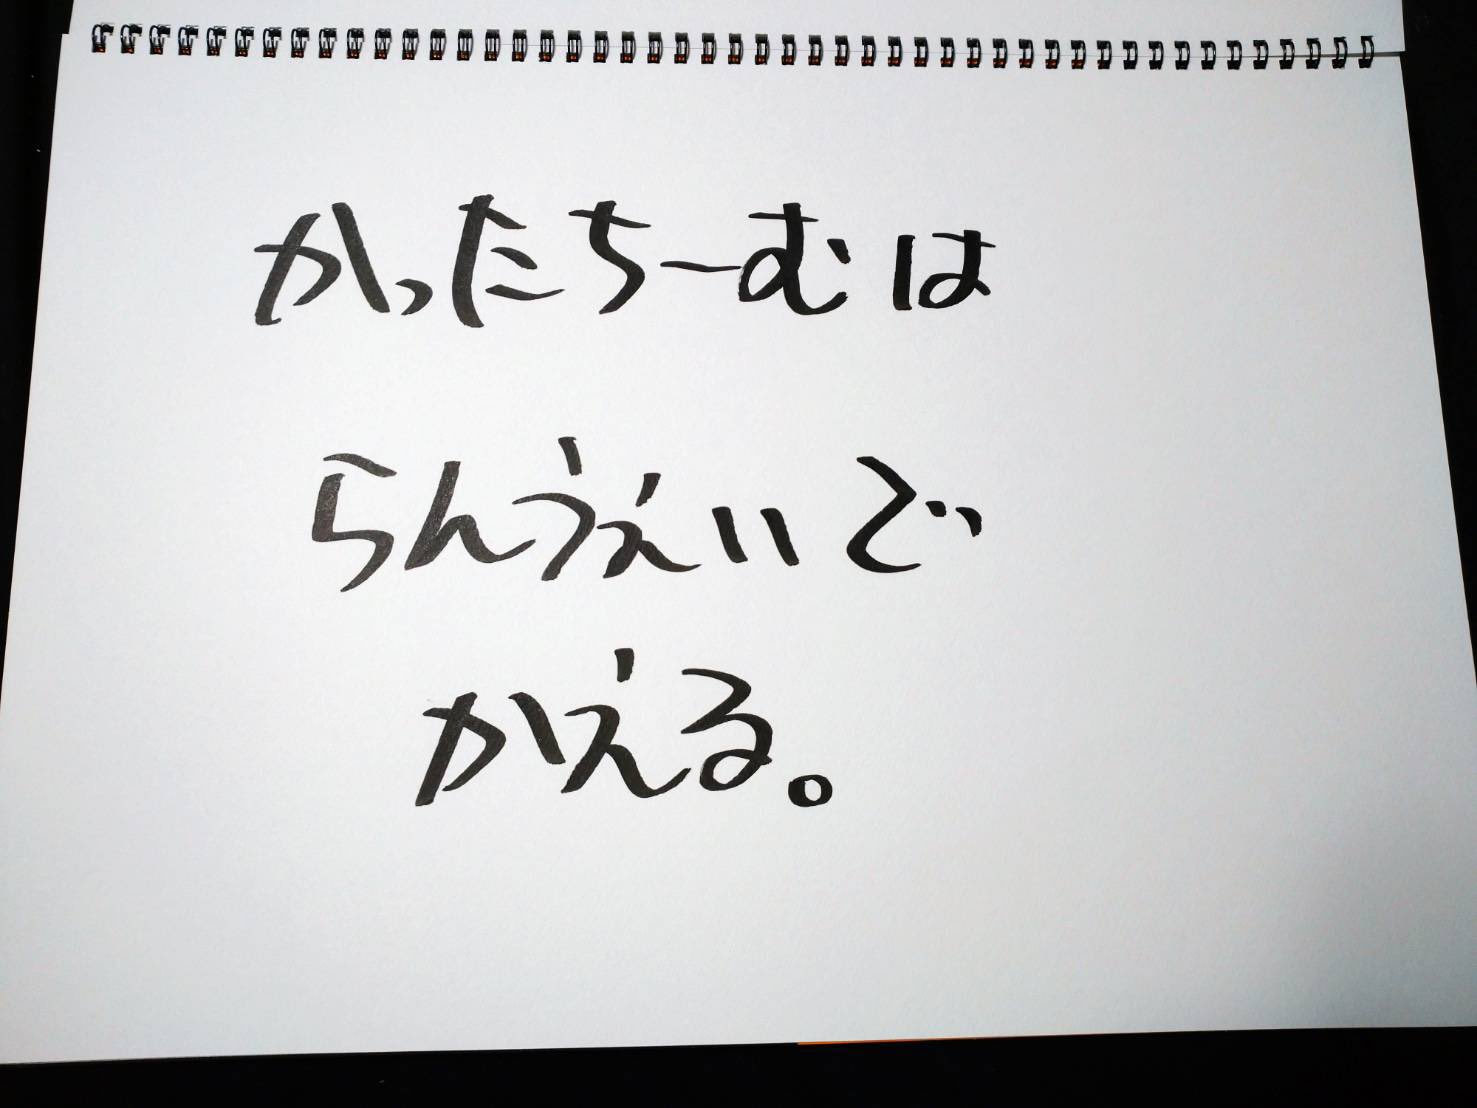 かったちーむは
らんうぇいで
かえる。